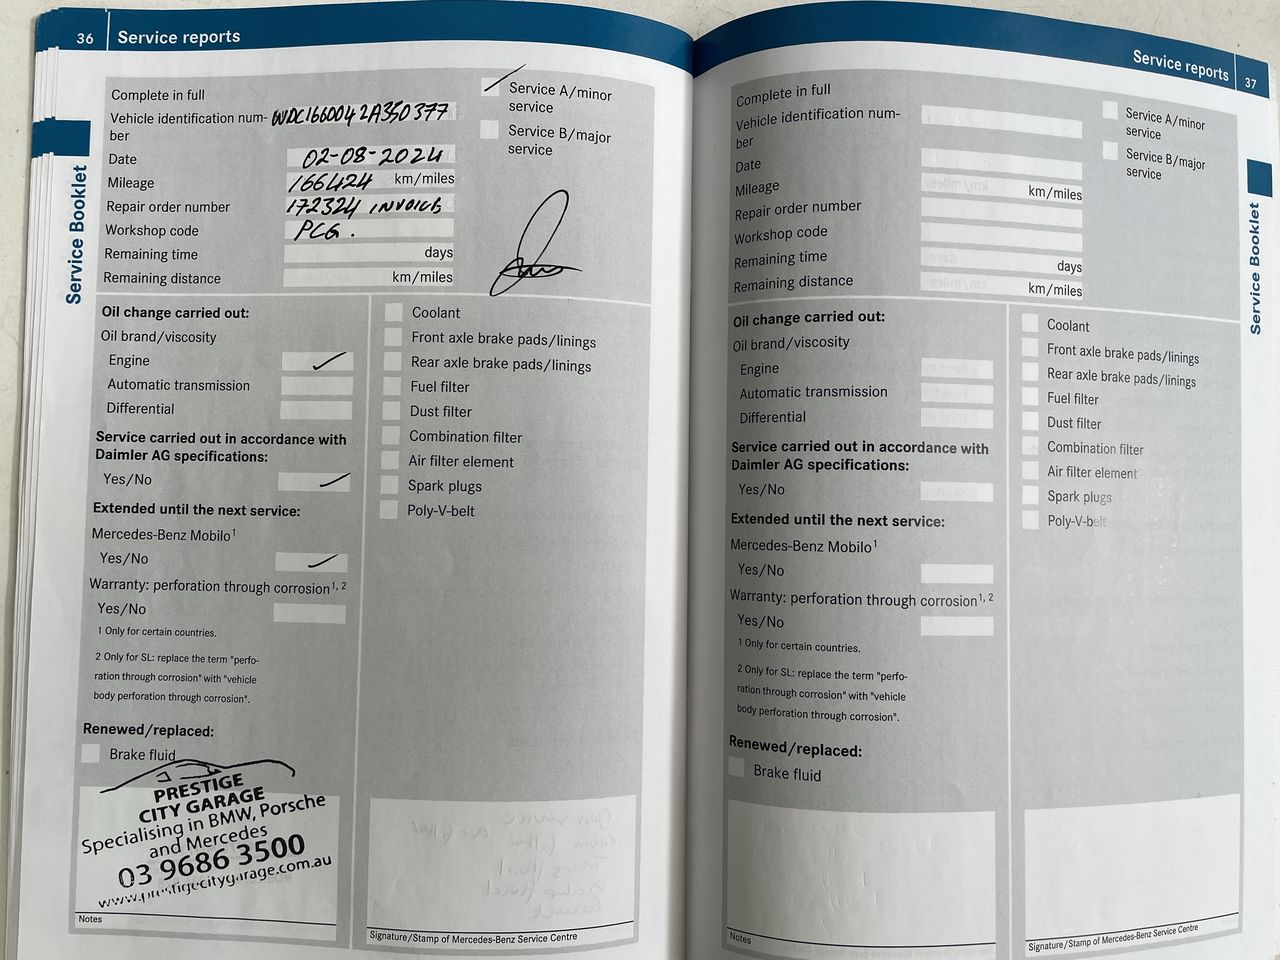 36 Service reports
Complete in full
Service A/minor
service
Vehicle identification num-
ber
WDC1660042A350377
Service B/major
service
Date 02-08-2024
Mileage 166424 km/miles
Repair order number 172324 INVOICE
Workshop code PCG.
Remaining time days
Remaining distance km/miles
Service Booklet
Oil change carried out:
Oil brand/viscosity
Engine
Automatic transmission
Differential
Service carried out in accordance with
Daimler AG specifications:
Yes/No
Extended until the next service:
Mercedes-Benz Mobilo1
Yes/No
Warranty: perforation through corrosion1, 2
Yes/No
1 Only for certain countries.
2 Only for SL: replace the term "perfo-
ration through corrosion" with "vehicle
body perforation through corrosion".
Renewed/replaced:
Brake fluid
Coolant
Front axle brake pads/linings
Rear axle brake pads/linings
Fuel filter
Dust filter
Combination filter
Air filter element
Spark plugs
Poly-V-belt
PRESTIGE
CITY GARAGE
Specialising in BMW, Porsche
and Mercedes
03 9686 3500
www.prestigecitygarage.com.au
Notes
Signature/Stamp of Mercedes-Benz Service Centre
Service reports 37
Complete in full
Service A/minor
service
Vehicle identification num-
ber
Service B/major
service
Date
Mileage km/miles
Repair order number
Workshop code
Remaining time days
Remaining distance km/miles
Service Booklet
Oil change carried out:
Oil brand/viscosity
Engine
Automatic transmission
Differential
Service carried out in accordance with
Daimler AG specifications:
Yes/No
Extended until the next service:
Mercedes-Benz Mobilo1
Yes/No
Warranty: perforation through corrosion1, 2
Yes/No
1 Only for certain countries.
2 Only for SL: replace the term "perfo-
ration through corrosion" with "vehicle
body perforation through corrosion".
Renewed/replaced:
Brake fluid
Coolant
Front axle brake pads/linings
Rear axle brake pads/linings
Fuel filter
Dust filter
Combination filter
Air filter element
Spark plugs
Poly-V-belt
Notes
Signature/Stamp of Mercedes-Benz Service Centre